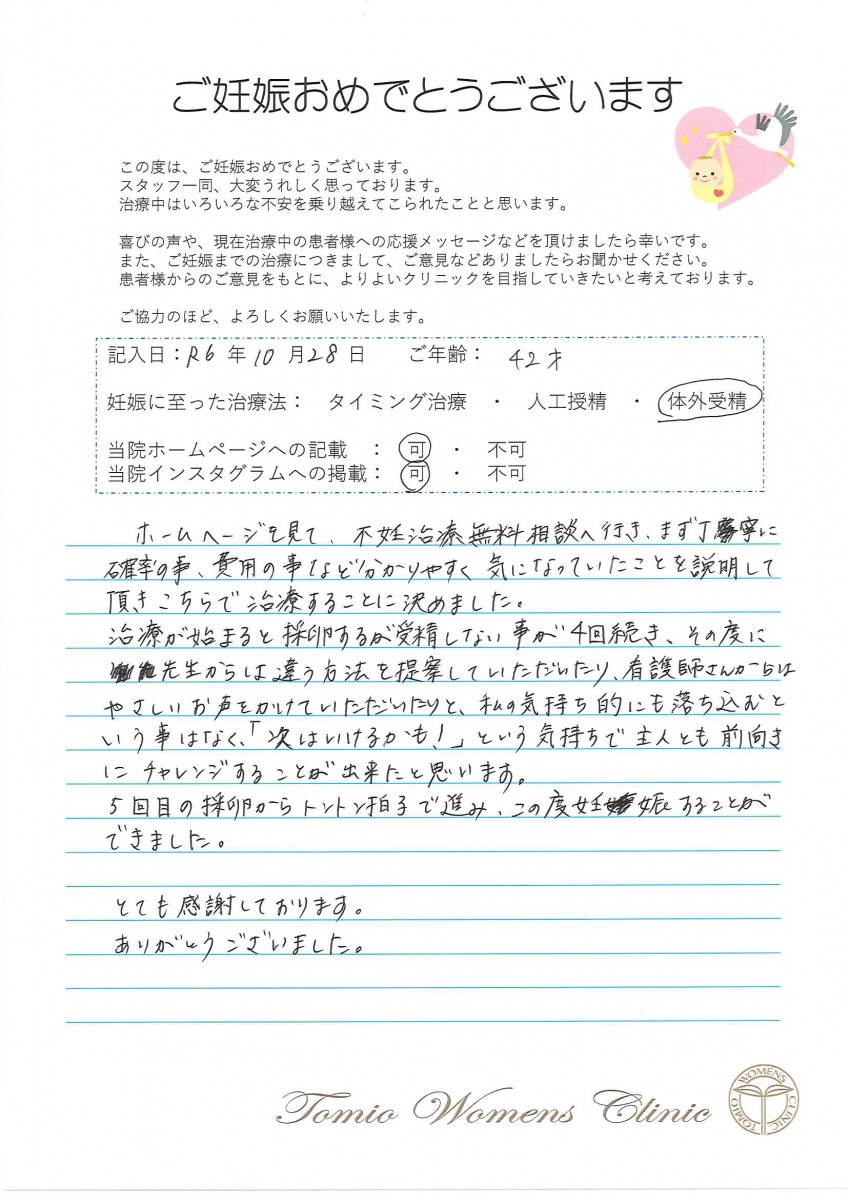 ご妊娠おめでとうございます
この度は、ご妊娠おめでとうございます。
スタッフ一同、大変うれしく思っております。
治療中はいろいろな不安を乗り越えてこられたことと思います。
喜びの声や、現在治療中の患者様への応援メッセージなどを頂けましたら幸いです。
また、ご妊娠までの治療につきまして、ご意見などありましたらお聞かせください。
患者様からのご意見をもとに、よりよいクリニックを目指していきたいと考えております。
ご協力のほど、よろしくお願いいたします。
記入日：R6 年 10 月 28 日 ご年齢： 42才
妊娠に至った治療法： タイミング治療 ・ 人工授精 ・ 体外受精
当院ホームページへの記載 ： 可 ・ 不可
当院インスタグラムへの掲載： 可 ・ 不可
ホームページを見て、不妊治療無料相談へ行き、まず丁寧に
確率の事、費用の事など分かりやすく気になっていたことを説明して
頂きこちらで治療することに決めました。
治療が始まると採卵するが受精しない事が4回続き、その度に
先生からは違う方法を提案していただいたり、看護師さんからは
やさしいお声をかけていただいたりと、私の気持ち的にも落ち込むと
いう事はなく、「次はいけるかも！」という気持ちで主人とも前向き
にチャレンジすることが出来たと思います。
5回目の採卵からトントン拍子で進み、この度妊娠することが
できました。
とても感謝しております。
ありがとうございました。
Tomio Womens Clinic
WOMENS CLINIC TOMIO